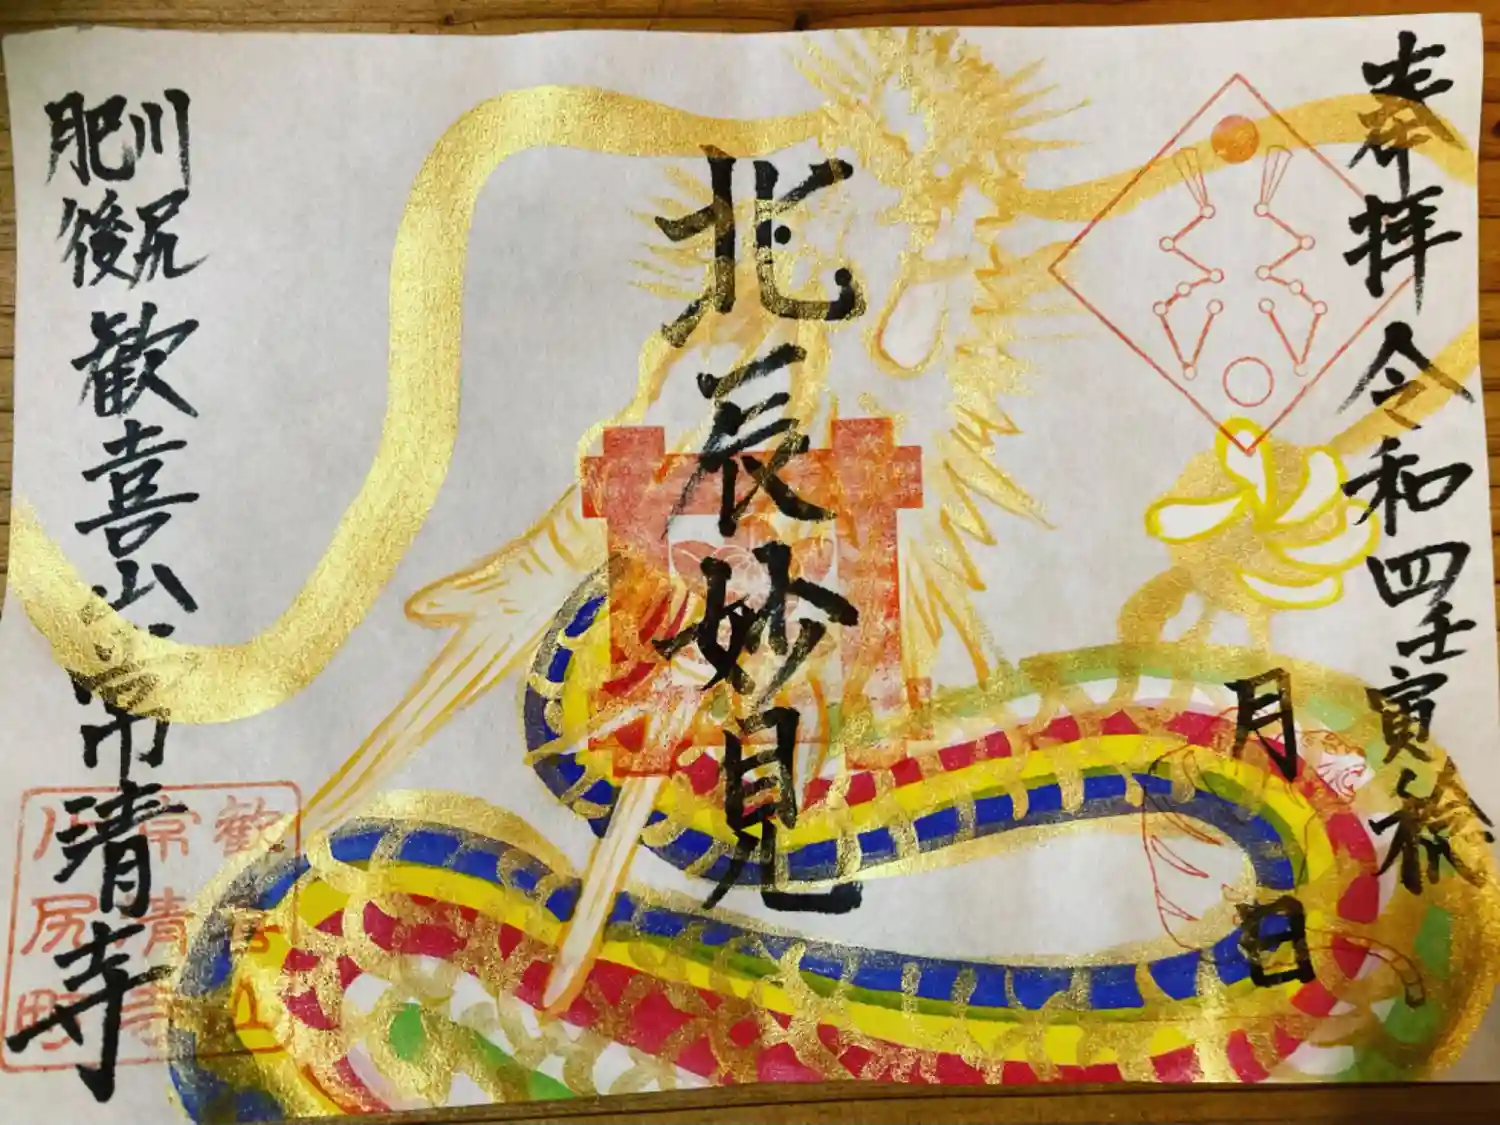 奉拝 令和四壬寅
月 日
北辰妙見
川尻
肥後
歡喜山 常清寺
歡喜山
常清寺
川尻町